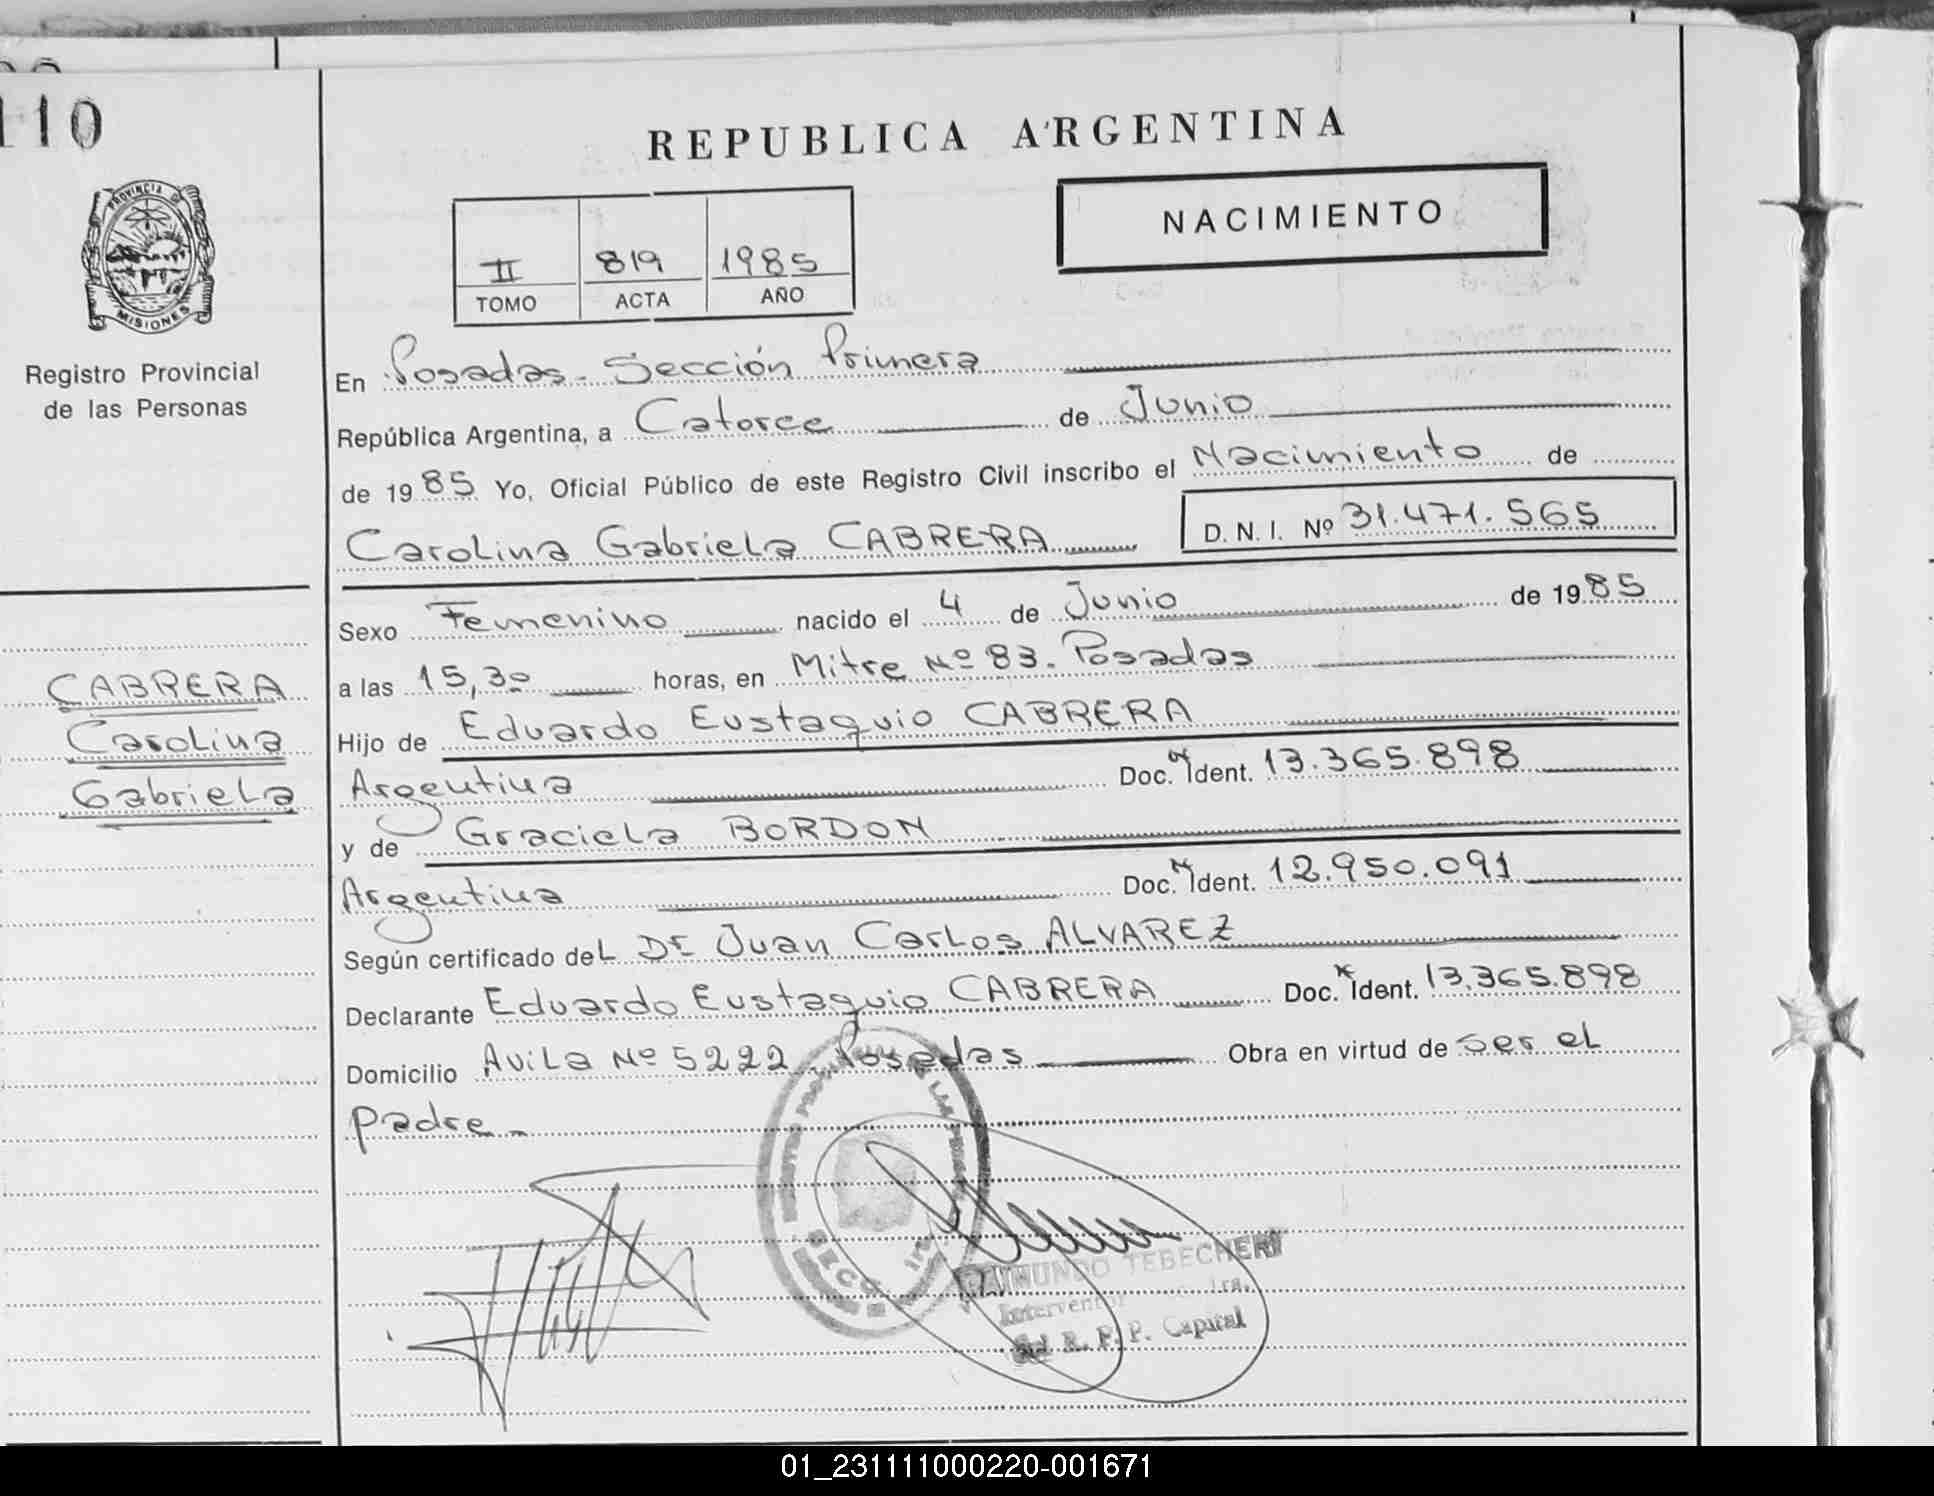 110
REPUBLICA ARGENTINA
NACIMIENTO
II 819 1985
TOMO ACTA AÑO
PROVINCIA DE
MISIONES
Registro Provincial
de las Personas
En Posadas - Sección Primera
República Argentina, a Catorce de Junio
de 1985 Yo, Oficial Público de este Registro Civil inscribo el Nacimiento de
Carolina Gabriela CABRERA D. N. I. Nº 31.471.565
Sexo Femenino nacido el 4 de Junio de 1985
CABRERA
Carolina
Gabriela
a las 15,30 horas, en Mitre Nº 83. Posadas
Hijo de Eduardo Eustaquio CABRERA
Argentina Doc. Ident. 13.365.898
y de Graciela BORDON
Argentina Doc. Ident. 12.950.091
Según certificado del Dr Juan Carlos ALVAREZ
Declarante Eduardo Eustaquio CABRERA Doc. Ident. 13.365.898
Domicilio Avila Nº 5222 Posadas Obra en virtud de ser el
padre -
RAIMUNDO TEBECHERI
Interventor
del R. P. P. Capital
01_231111000220-001671